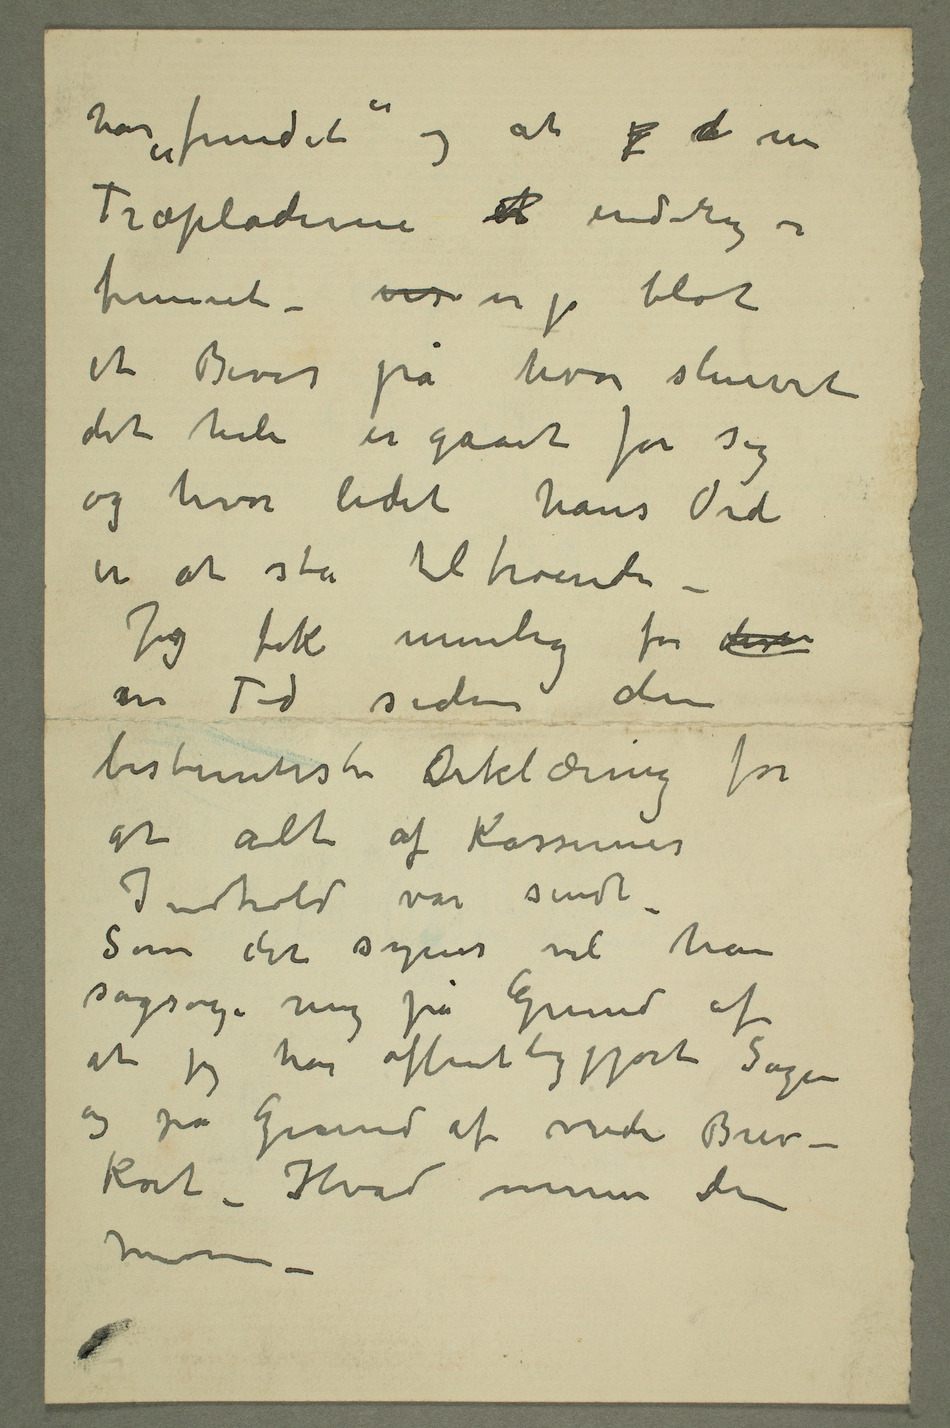 har „fundet“ og at nu
Træpladerne endelig er
funnet – er jo blot
et Bevis på hvor skurvet
det hele er gaaet for sig
og hvor lidet hans Ord
er at stå til troende –
Jeg fik nemlig for
en Tid siden den
bestemteste Erklæring for
at alt af Kassernes
Indhold var sendt –
Som det synes vil han
sagsøge mig på Grund af
at jeg har offentliggjort Sagen
og på Grund af vrede Brev–
Kort – Hvad mener du
herom –